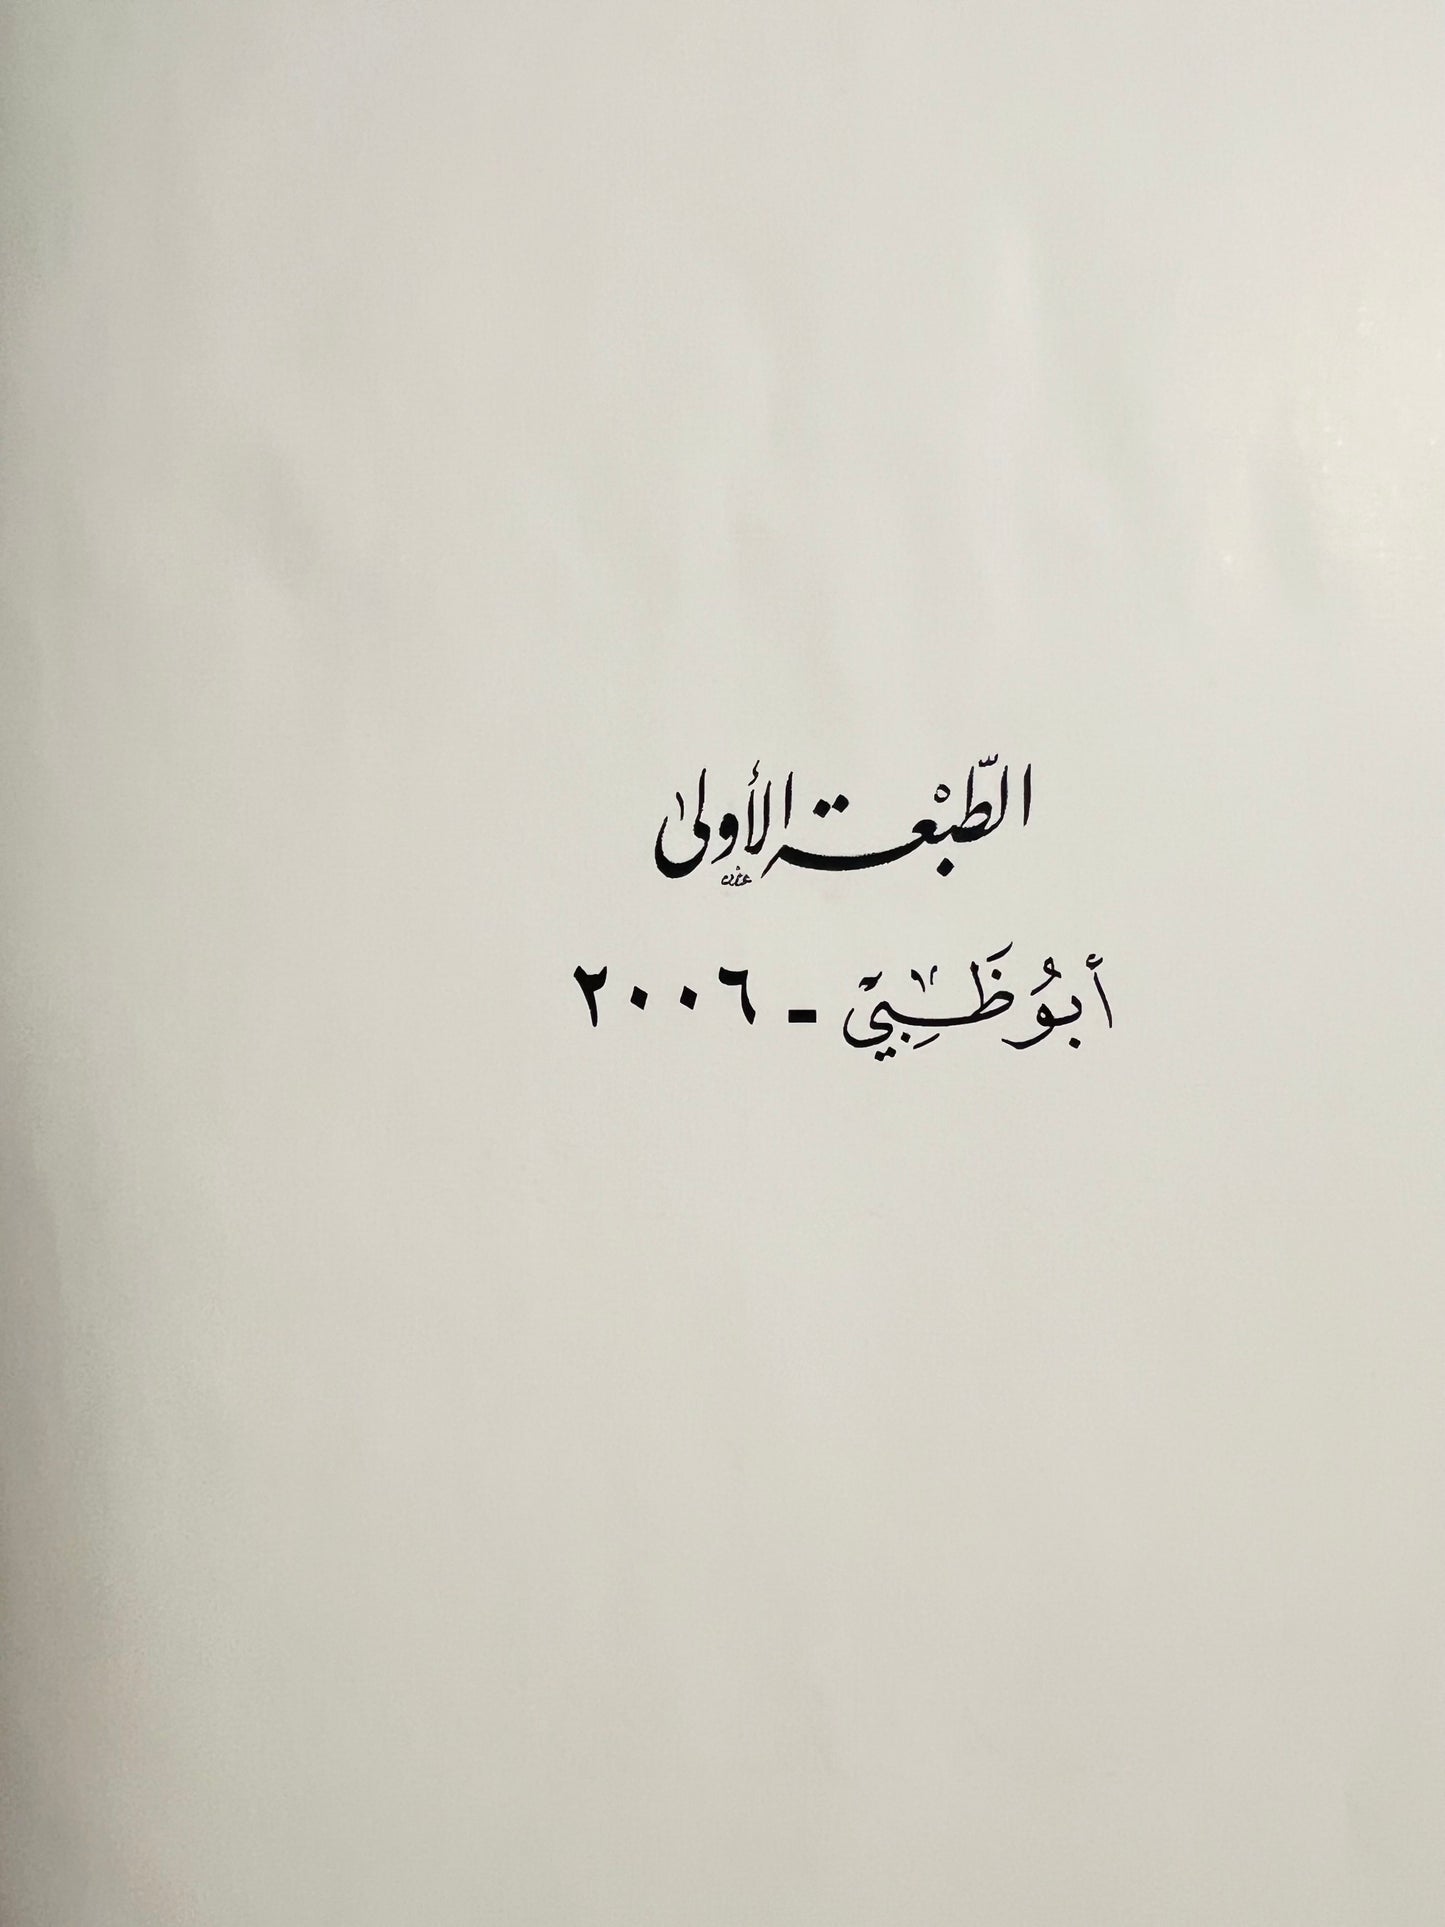 الطّبْعة الأولى
أبُو ظَبِي - ٢٠٠٦